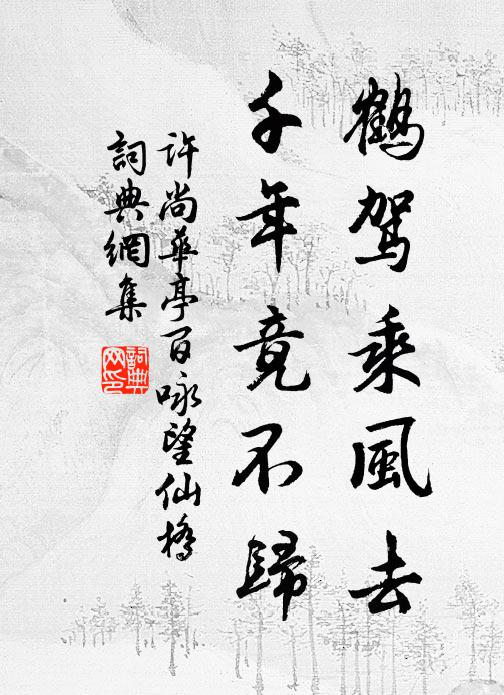 鶴駕乘風去
千年竟不歸
許尚華亭百咏望仙橋
詞典網集
詞典
网印